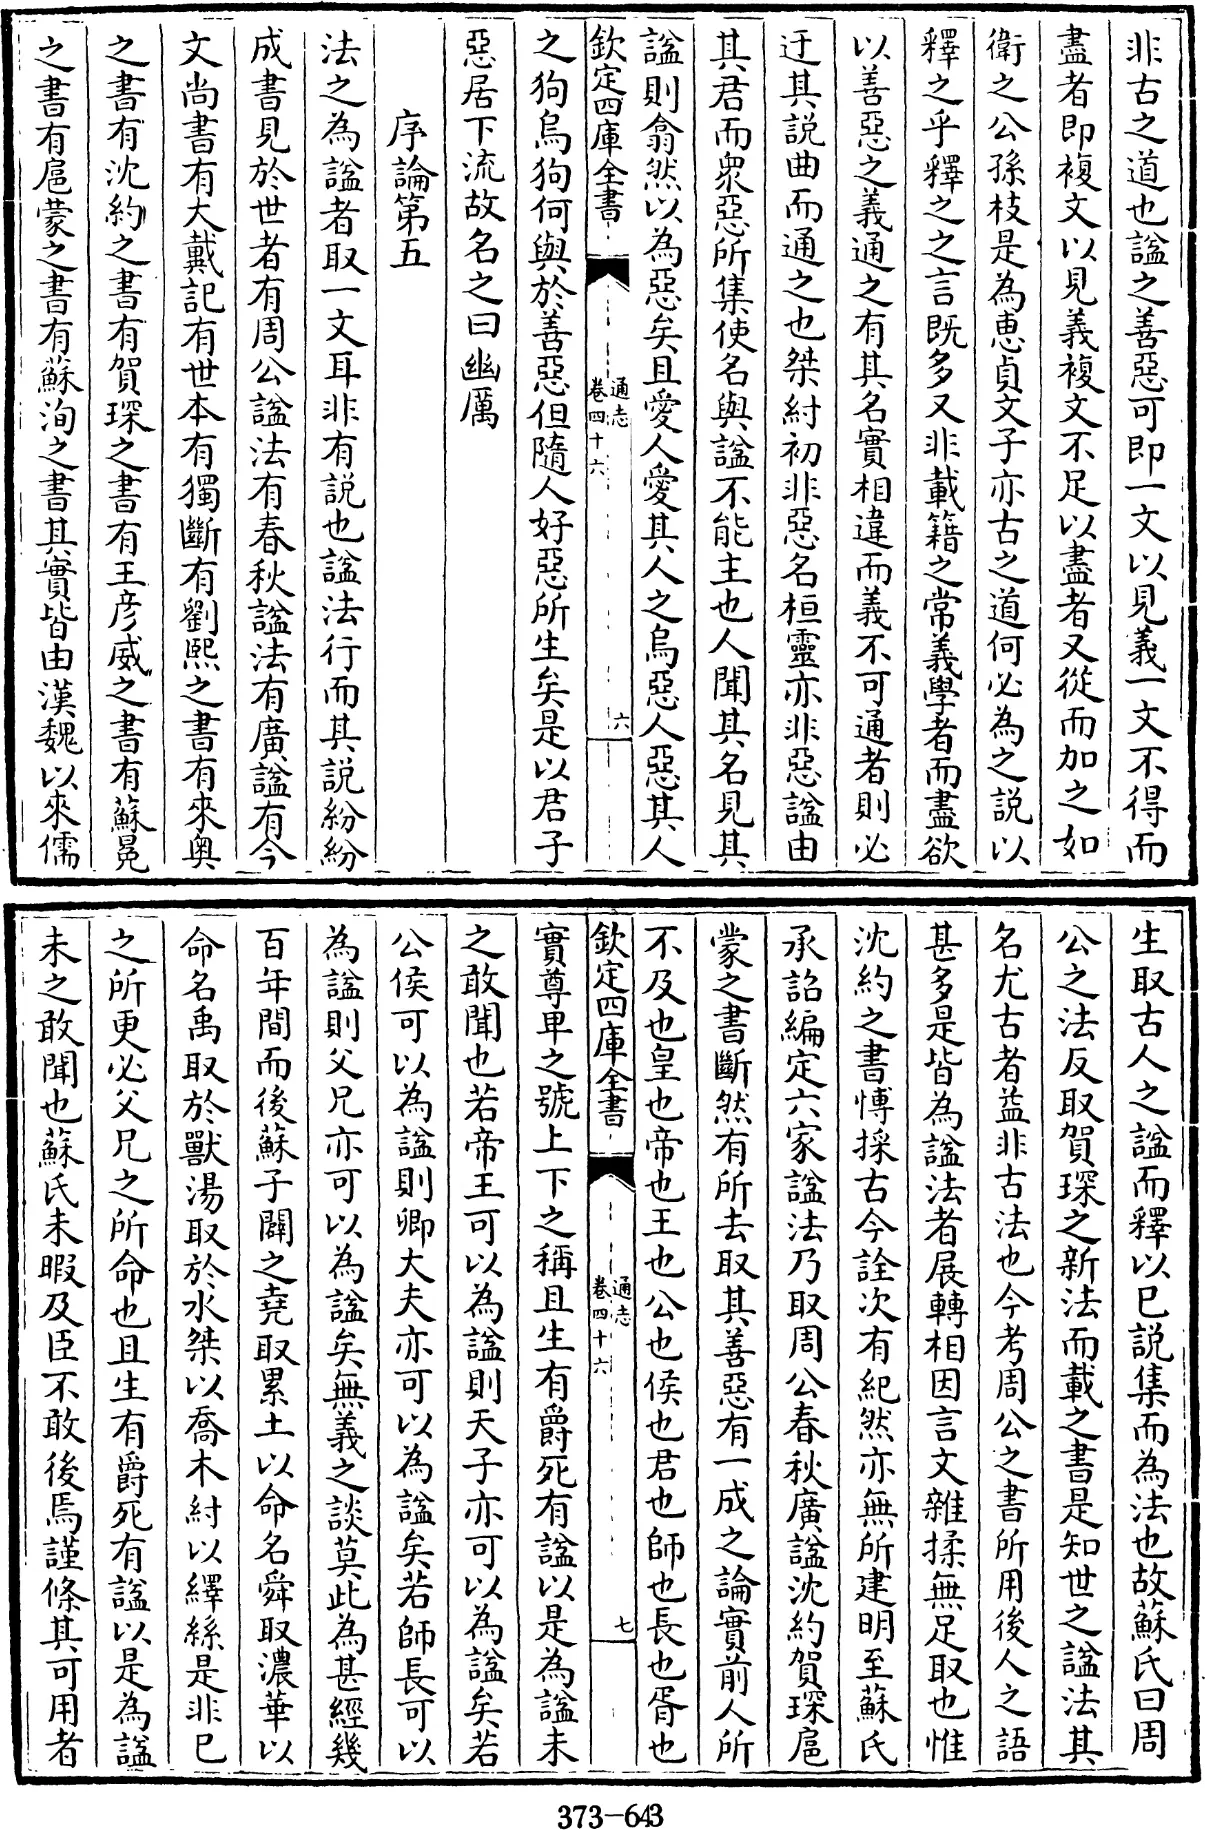 非古之道也諡之善惡可即一文以見義一文不得而
盡者即複文以見義複文不足以盡者又從而加之如
衛之公孫枝是為恵貞文子亦古之道何必為之説以
釋之乎釋之之言既多又非載籍之常義學者而盡欲
以善惡之義通之有其名實相違而義不可通者則必
迂其説曲而通之也桀紂初非惡名桓靈亦非惡諡由
其君而衆惡所集使名與諡不能主也人聞其名見其
諡則翕然以為惡矣且愛人愛其人之烏惡人惡其人
欽定四庫全書
通志
卷四十六
六
之狗烏狗何與於善惡但隨人好惡所生矣是以君子
惡居下流故名之曰幽厲
序論第五
法之為諡者取一文耳非有説也諡法行而其説紛紛
成書見於世者有周公諡法有春秋諡法有廣諡有今
文尚書有大戴記有世本有獨斷有劉熙之書有來奥
之書有沈約之書有賀琛之書有王彦威之書有蘇冕
之書有扈蒙之書有蘇洵之書其實皆由漢魏以來儒
生取古人之諡而釋以已説集而為法也故蘇氏曰周
公之法反取賀琛之新法而載之書是知世之諡法其
名尤古者益非古法也今考周公之書所用後人之語
甚多是皆為諡法者展轉相因言文雜揉無足取也惟
沈約之書博採古今詮次有紀然亦無所建明至蘇氏
承詔編定六家諡法乃取周公春秋廣諡沈約賀琛扈
蒙之書斷然有所去取其善惡有一成之論實前人所
不及也皇也帝也王也公也侯也君也師也長也胥也
欽定四庫全書
通志
卷四十六
七
實尊卑之號上下之稱且生有爵死有諡以是為諡未
之敢聞也若帝王可以為諡則天子亦可以為諡矣若
公侯可以為諡則卿大夫亦可以為諡矣若師長可以
為諡則父兄亦可以為諡矣無義之談莫此為甚經幾
百年間而後蘇子闢之堯取累土以命名舜取濃華以
命名禹取於獸湯取於水桀以喬木紂以繹絲是非已
之所更必父兄之所命也且生有爵死有諡以是為諡
未之敢聞也蘇氏未暇及臣不敢後焉謹條其可用者
373-643